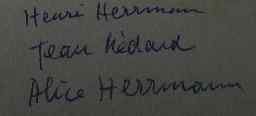 Henri Herrmann
Jean Médard
Alice Herrmann